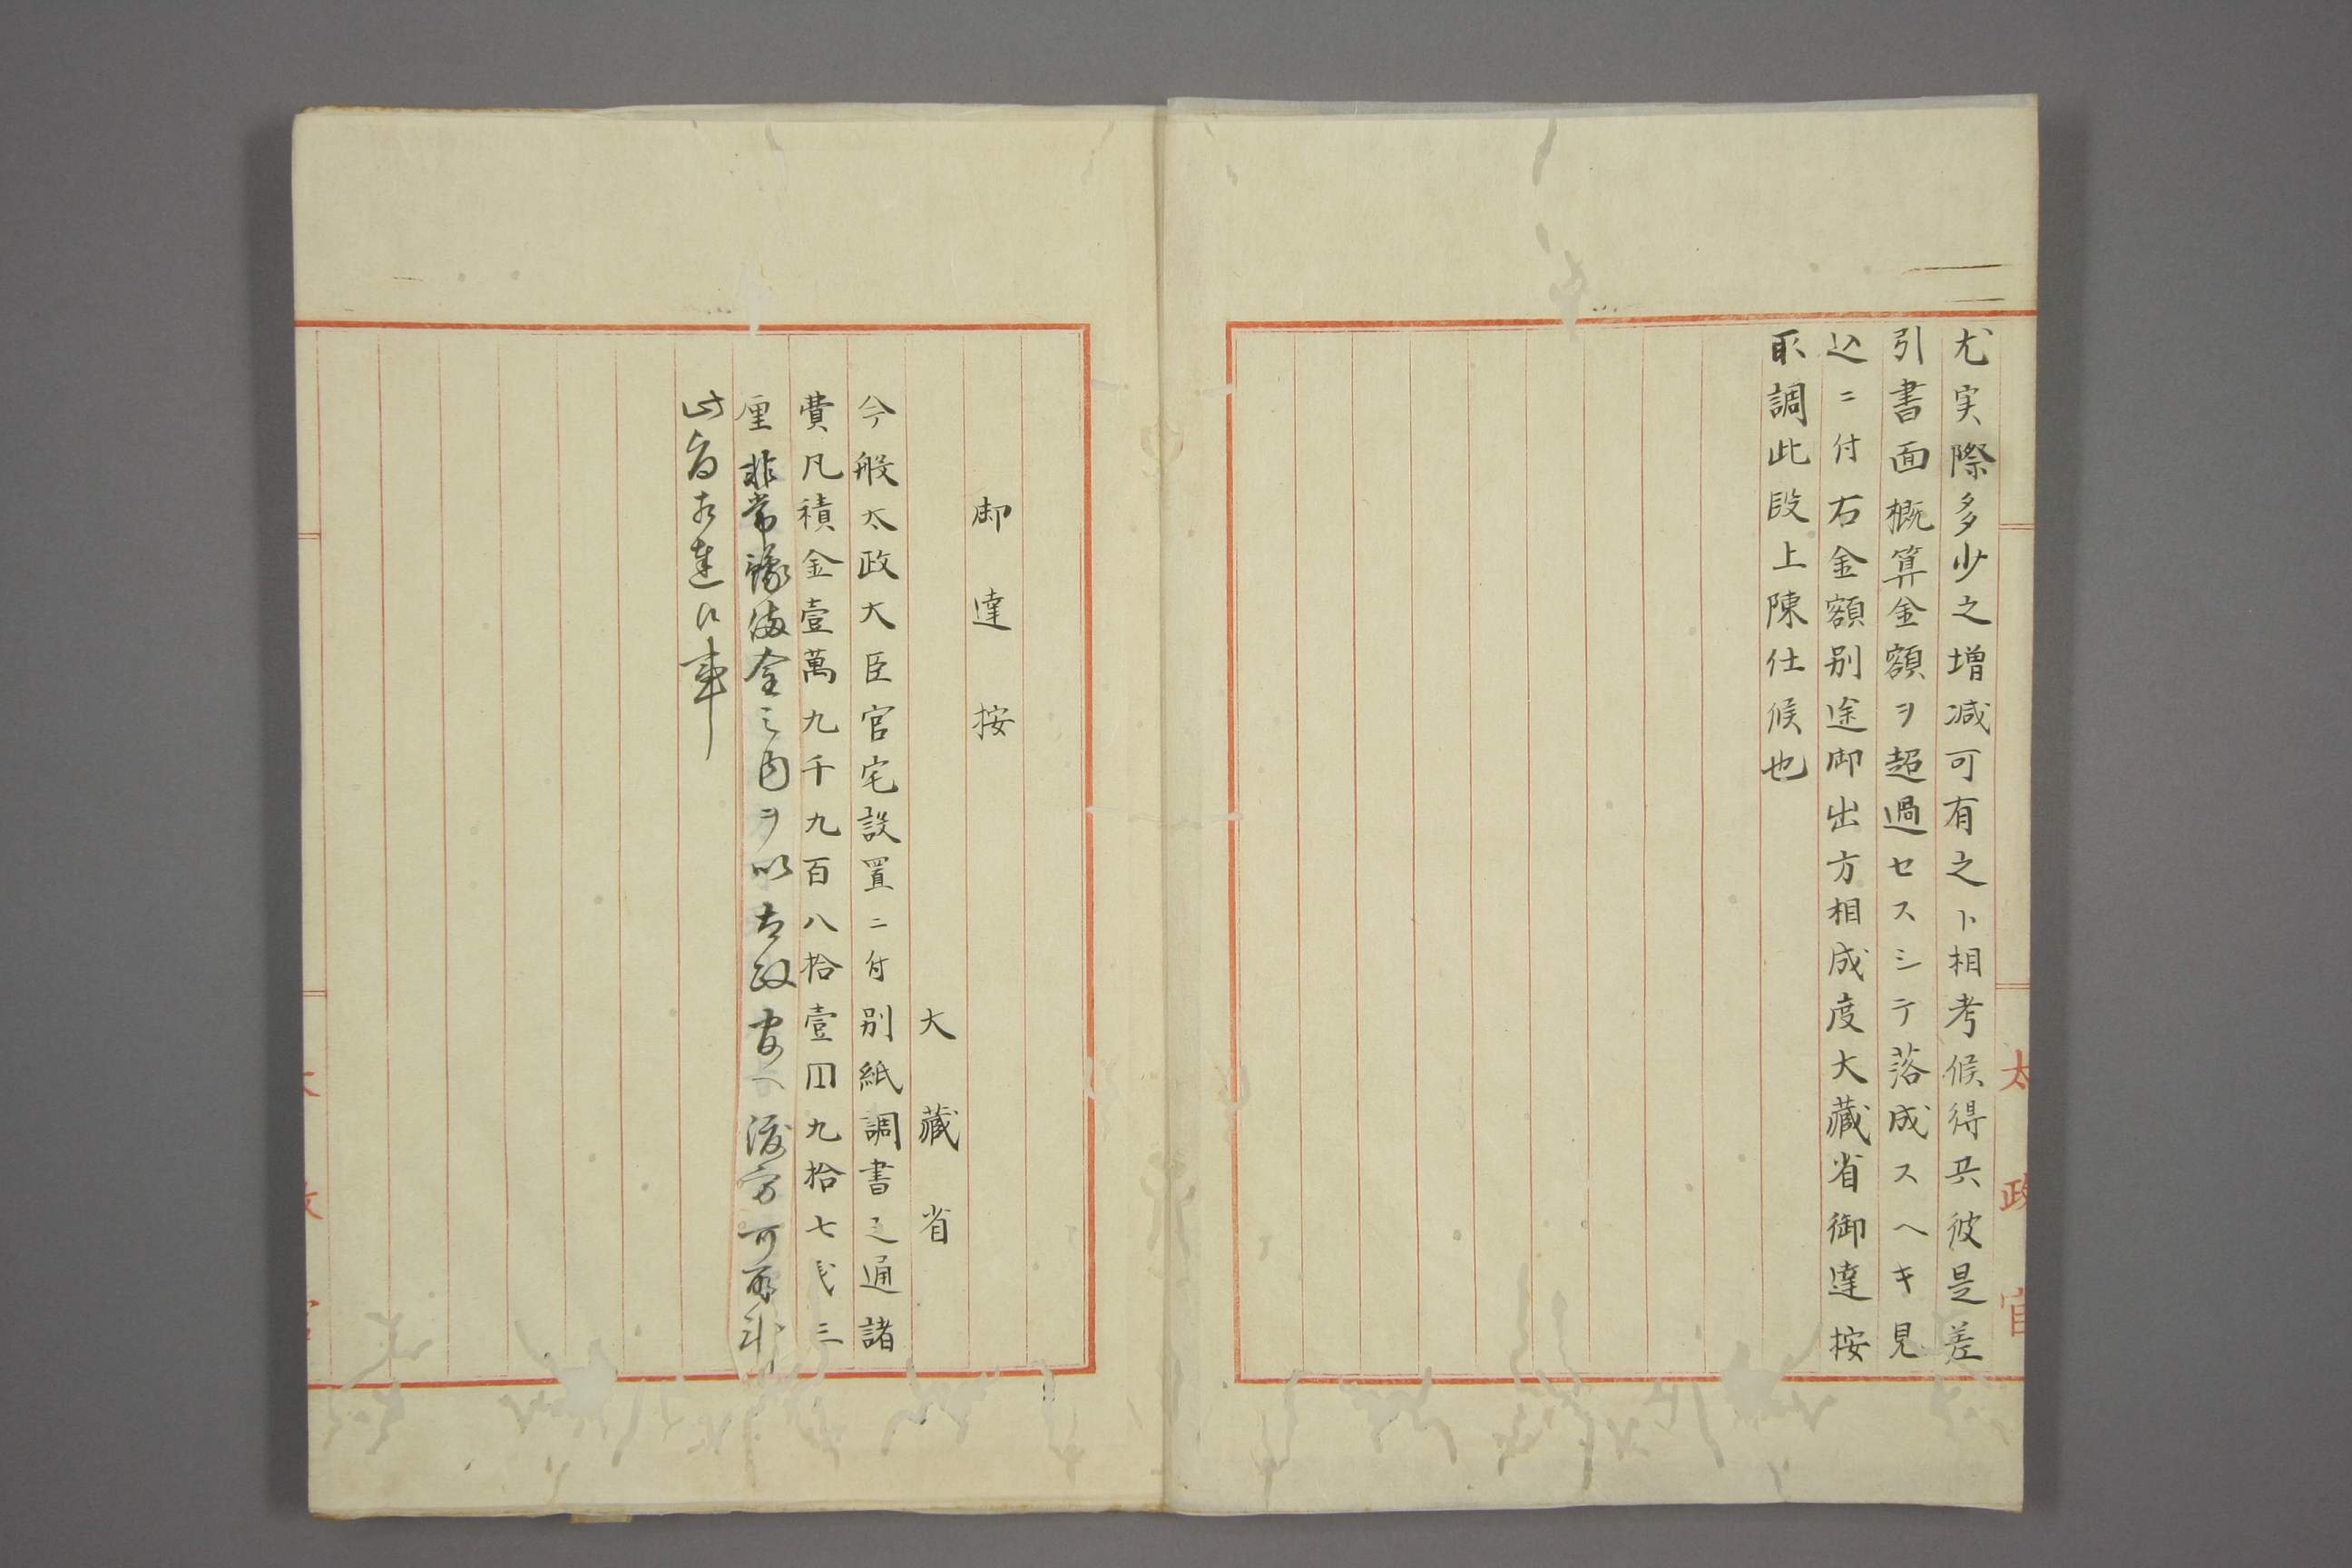 尤実際多少之増减可有之ト相考候得共彼是差
引書面概算金額ヲ超過セスシテ落成スヘキ見
込ニ付右金額别途御出方相成度大藏省御達按
取調此段上陳仕候也
太政官
御達按
大藏省
今般太政大臣官宅設置ニ付别紙調書之通諸
費凡積金壹萬九千九百八拾壹円九拾七戋三
厘非常豫備金之内ヲ以太政官ヘ渡方可取計
此旨相達候事